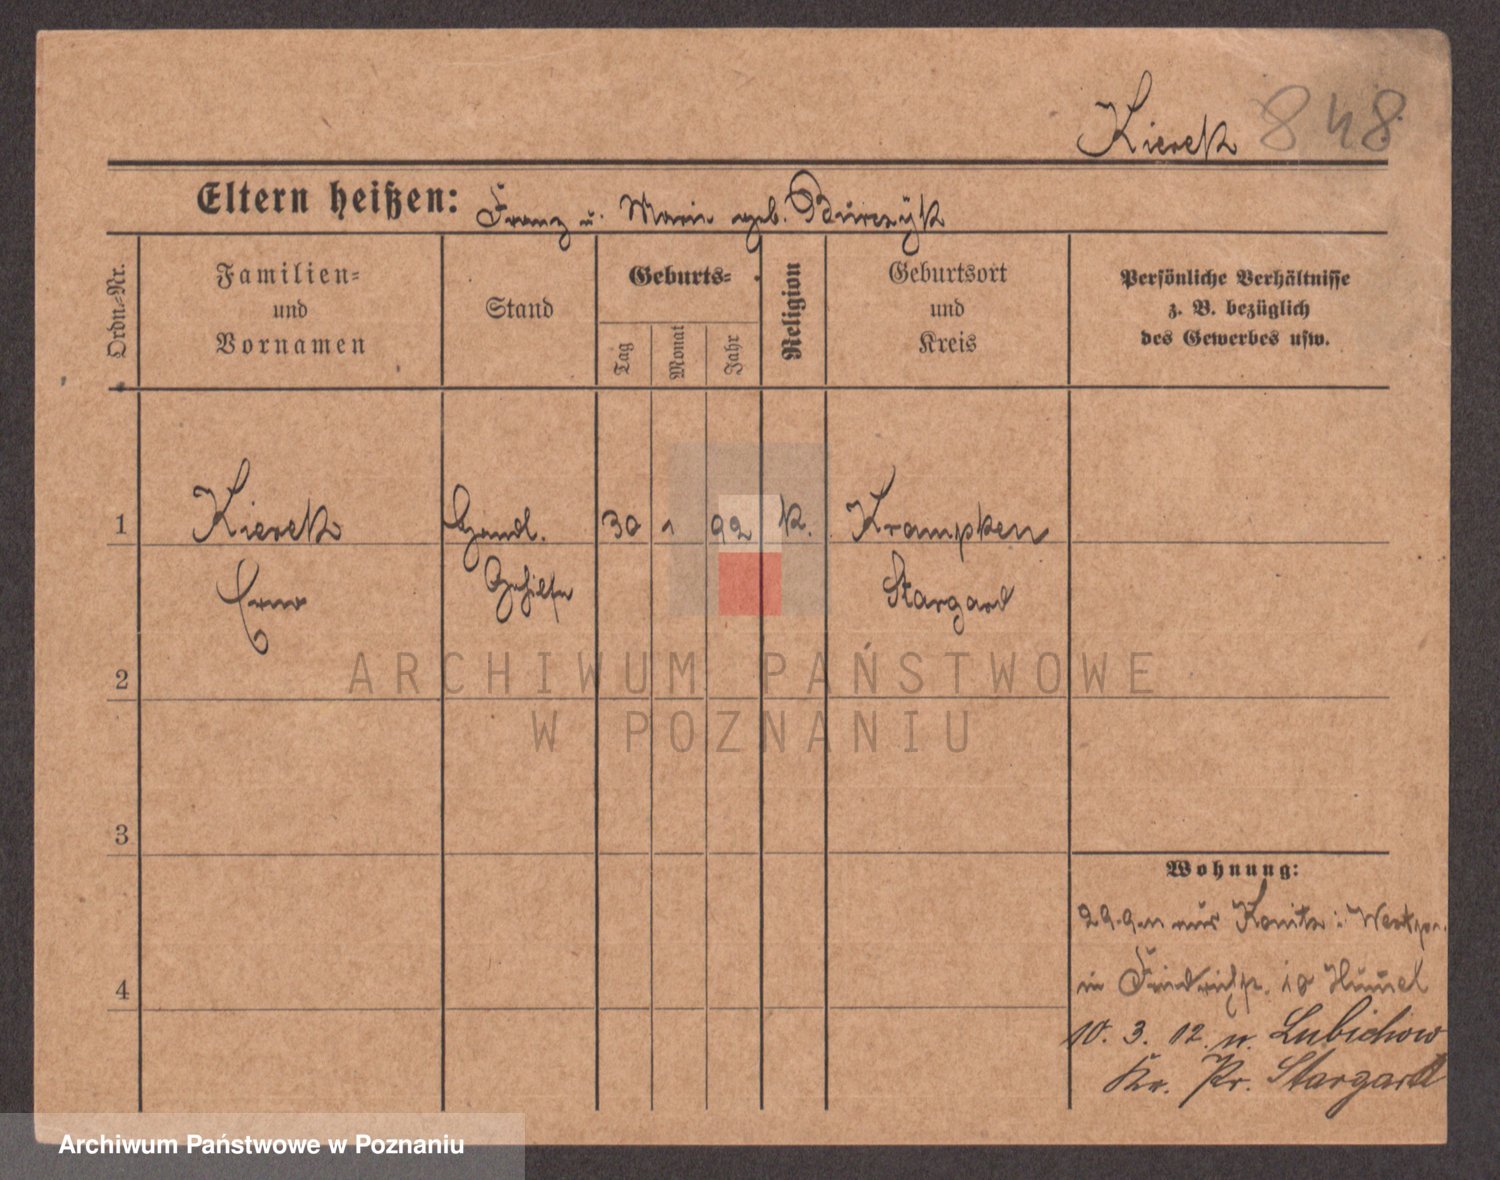 Kierek 848
Eltern heißen: Franz u. Marie geb. Burczÿk
Ordn.=Nr.
Familien=
und
Vornamen
Stand
Geburts=
Tag
Monat
Jahr
Religion
Geburtsort
und
Kreis
Persönliche Verhältnisse
z. B. bezüglich
des Gewerbes usw.
1 Kierek Handl. 30 1 92 k. Krampken
Gehilfe Stargard
ARCHIWUM PAŃSTWOWE
2
W POZNANIU
3
Wohnung:
29.9.11 aus Konitz i. Westpr.
4
in Friedrichstr. 10 Hummel
10. 3. 12. n. Lubichow
Kr. Pr. Stargard
Archiwum Państwowe w Poznaniu